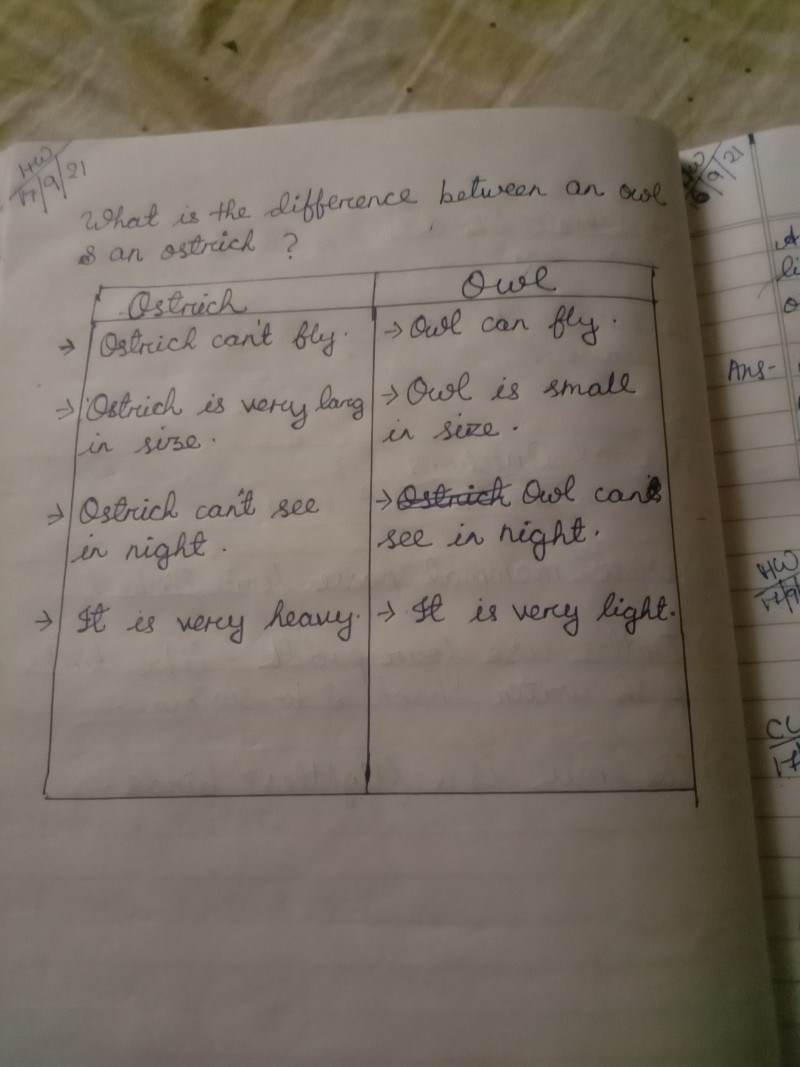 HW
17/9/21
What is the difference between an owl
& an ostrich ?
Ostrich
Owl
→ Ostrich can't fly.
→ Owl can fly.
→ Ostrich is very larg
in size.
→ Owl is small
in size.
→ Ostrich can't see
in night.
→ Ostrich Owl can
see in night.
→ It is very heavy.
→ It is very light.
HW
9/21
Ans-
HW
17/9